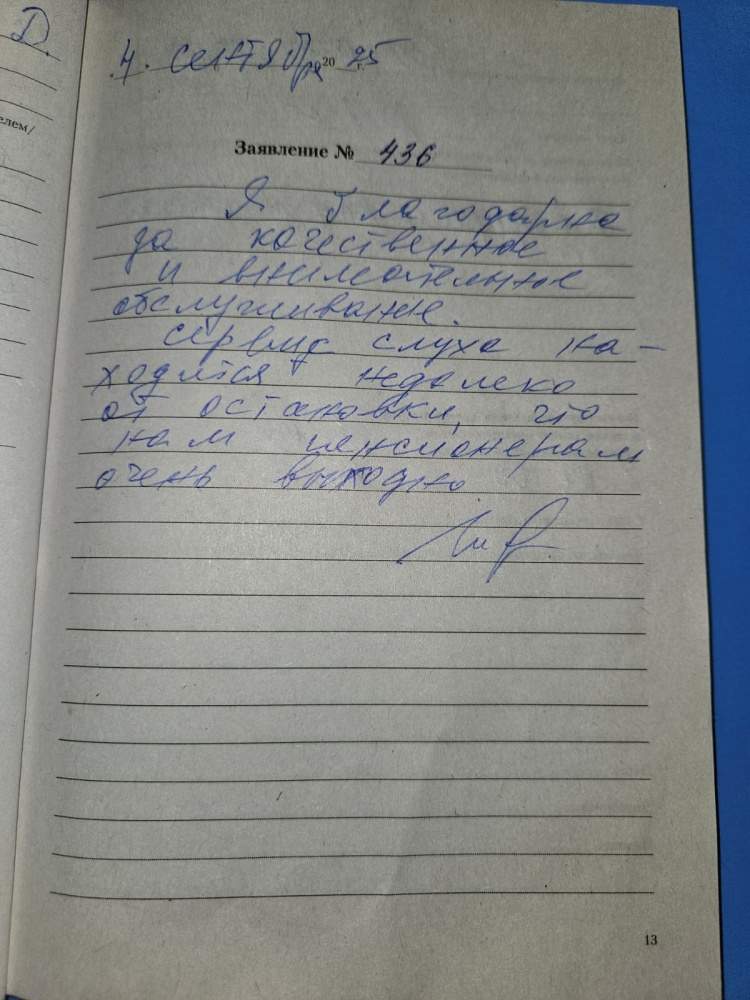 Д.
елем/
4. сентября 2025 г.
Заявление № 436
Я благодарна
за качественное
и внимательное
обслуживание.
сервис слуха на-
ходится недалеко
от остановки, что
нам пенсионерам
очень выходно
13